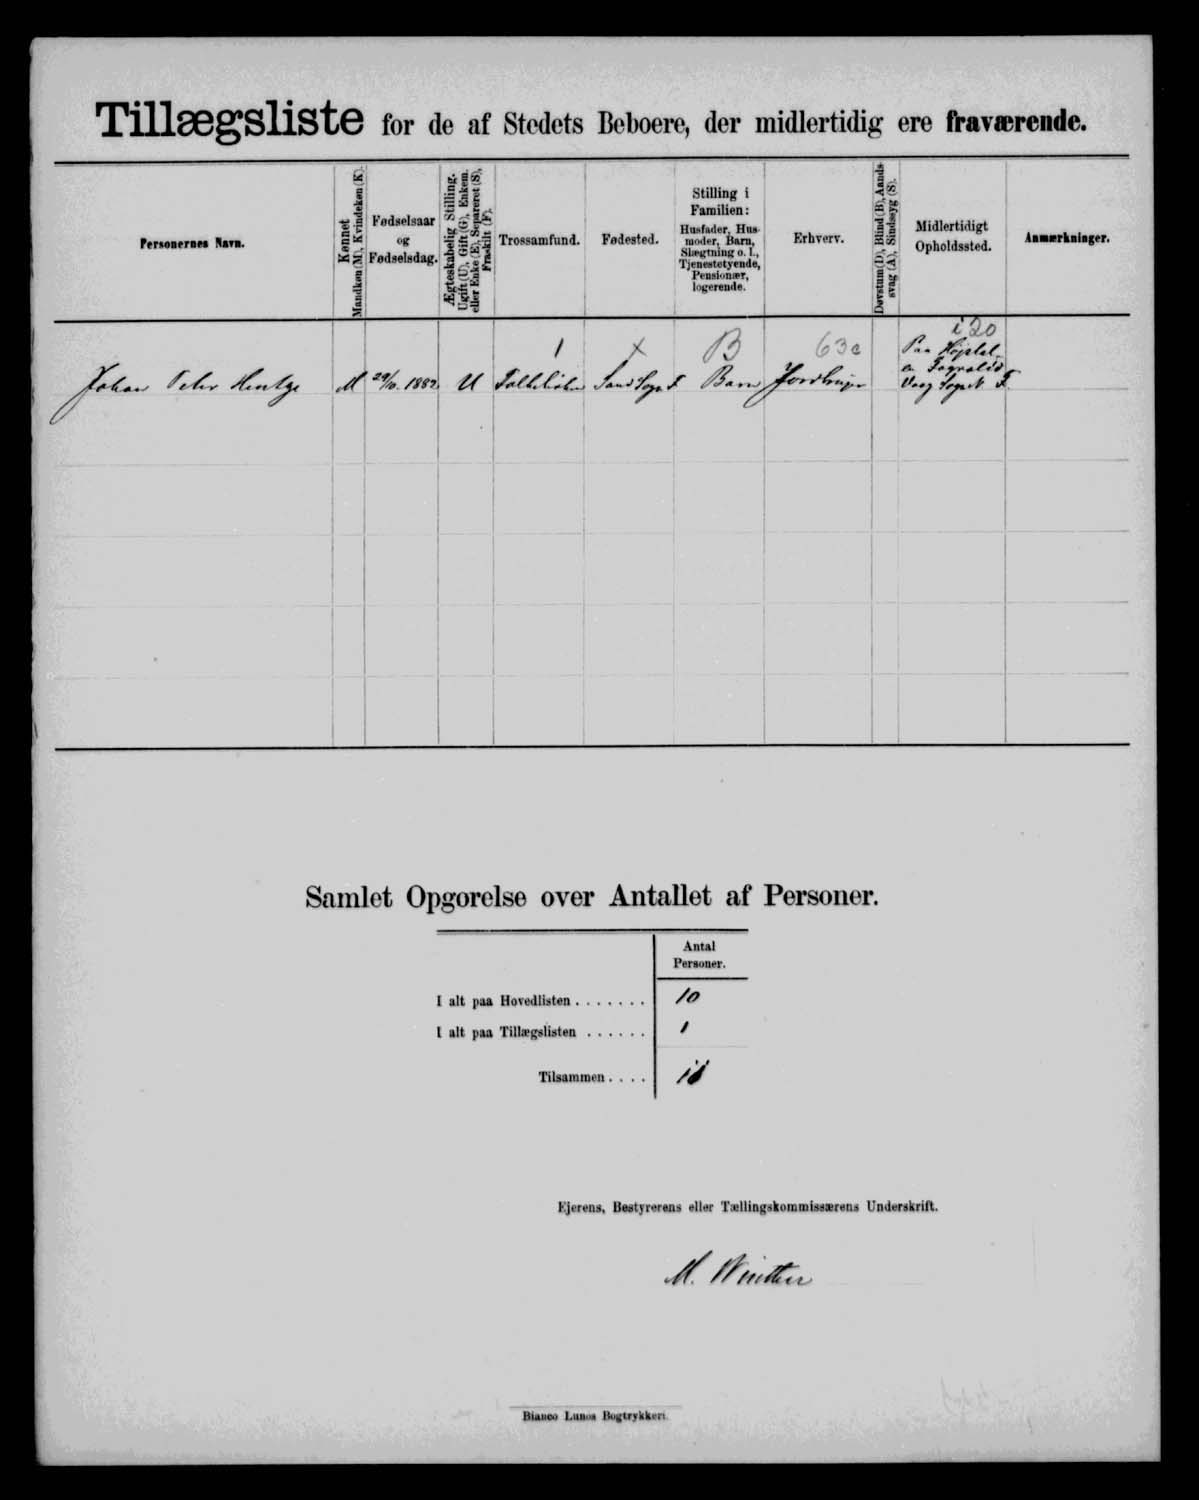 Tillægsliste for de af Stedets Beboere, der midlertidig ere fraværende.
Personernes Navn.
Kønnet
Mandkøn (M), Kvindekøn (K).
Fødselsaar
og
Fødselsdag.
Ægteskabelig Stilling.
Ugift (U), Gift (G), Enkem.
eller Enke (E), Separeret (S),
Fraskilt (F).
Trossamfund.
Fødested.
Stilling i
Familien:
Husfader, Hus-
moder, Barn,
Slægtning o. l.,
Tjenestetyende,
Pensionær,
logerende.
Erhverv.
Døvstum (D), Blind (B), Aands-
svag (A), Sindssyg (S).
Midlertidigt
Opholdssted.
Anmærkninger.
1 x B 63a i20
Johan Peter Hentze M 1882 U Folkekirken Sand Sogn F Barn Jordbruger
Paa
Vaag Sogn F
Samlet Opgorelse over Antallet af Personer.
Antal
Personer.
I alt paa Hovedlisten . . . . . . . 10
I alt paa Tillægslisten . . . . . . 1
Tilsammen . . . . 11
Ejerens, Bestyrerens eller Tællingskommissærens Underskrift.
M. Winther
Bianco Lunos Bogtrykkeri.